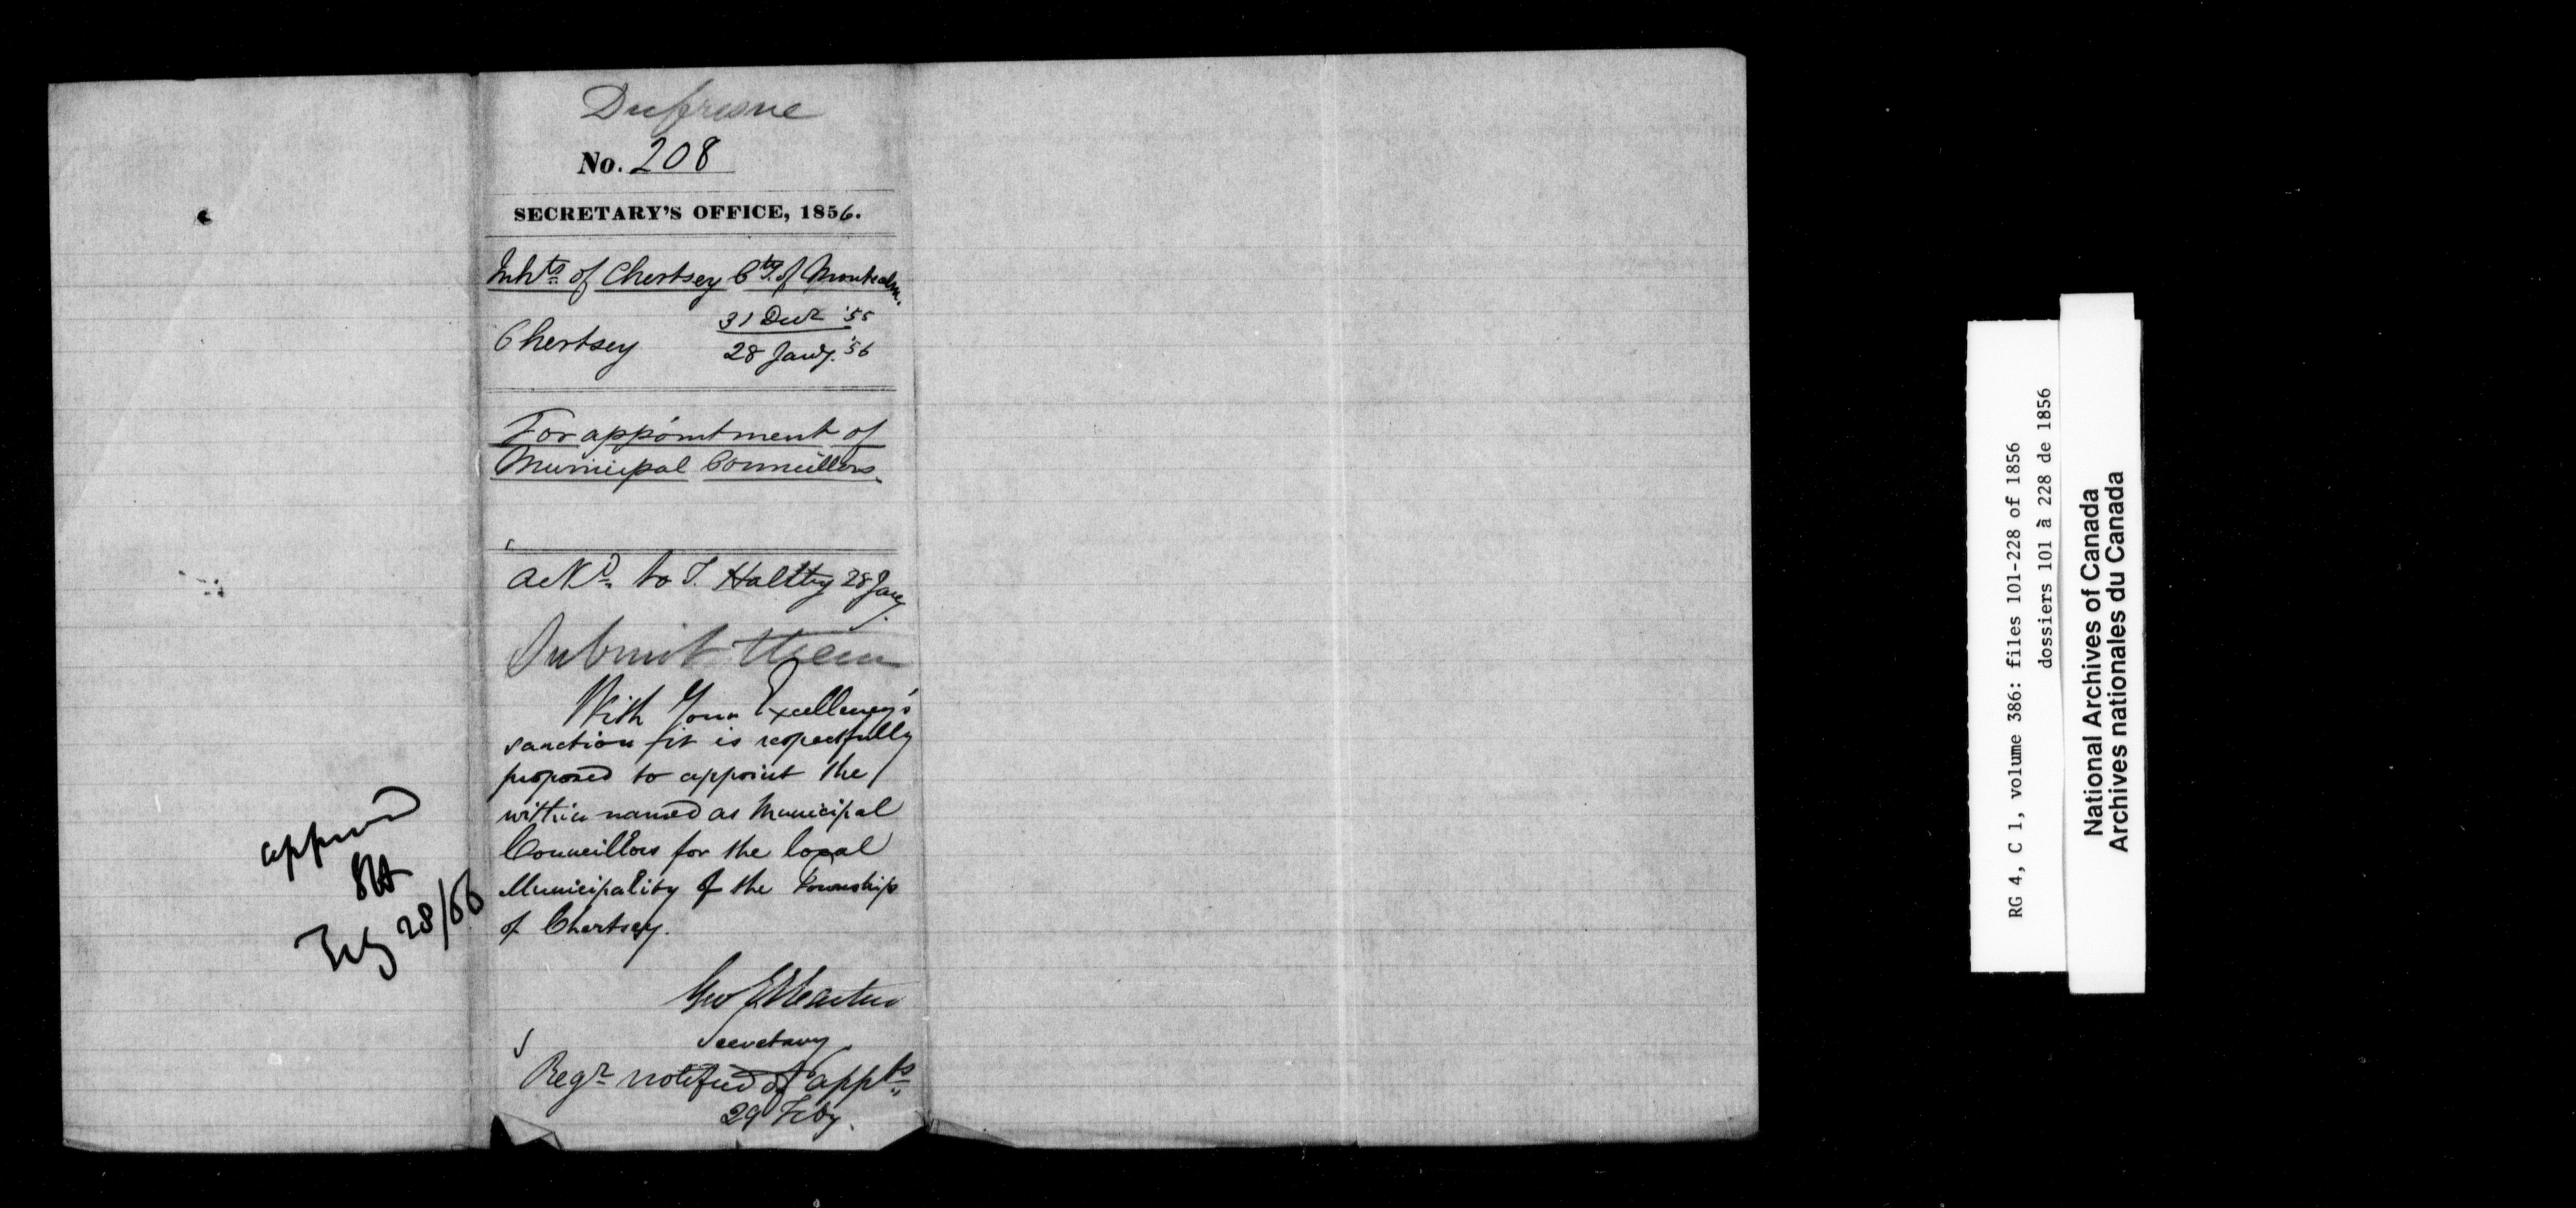 Dufresne
No. 208
SECRETARY'S OFFICE, 1856.
Inhts of Chertsey Cty. of Montcalm.
31 Decr '55
Chertsey
28 Jany. '56
For appointment of
Municipal Councillors.
Ackd. to J. 28 Jany.
Submit them
With Your Excellency's
sanction it is respectfully
proposed to appoint the
within named as Municipal
Councillors for the local
Municipality of the Township
of Chertsey.
Geo E Cartier
Secretary
Regr notified of appts
29 Feby.
approved
Feby 28/56
RG 4, C 1, volume 386: files 101-228 of 1856
dossiers 101 à 228 de 1856
National Archives of Canada
Archives nationales du Canada